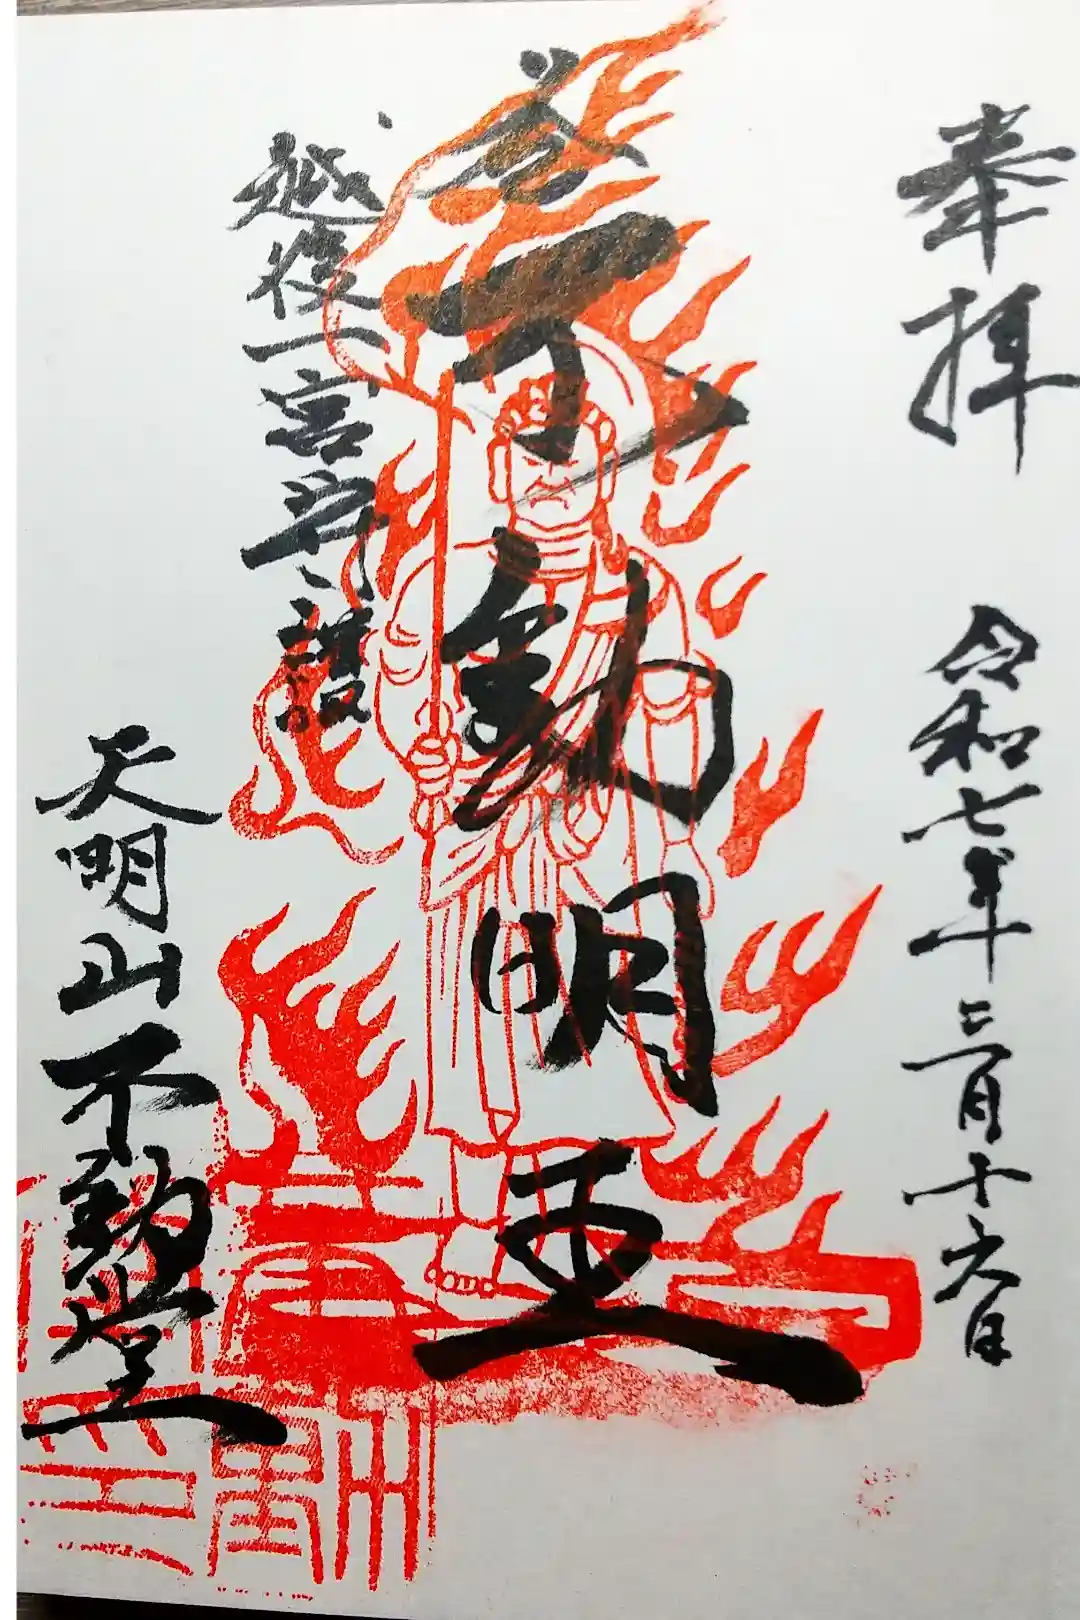 奉拝
令和七年三月十六日
不動明王
越後一宮守護
天明山不動堂